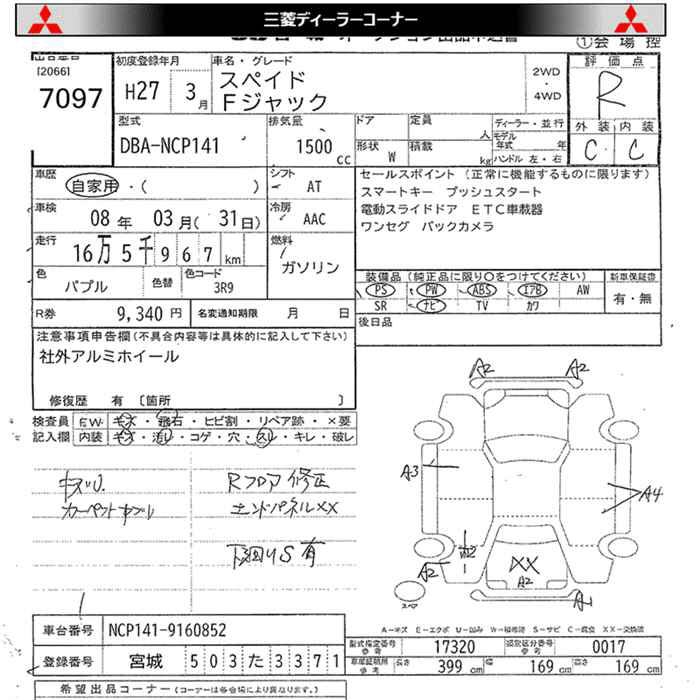 三菱ディーラーコーナー
①会場控
[2066]
7097
初度登録年月
H27 3月
車名・グレード
スペイド
Fジャック
2WD
・
4WD
評価点
R
外装 内装
C C
型式
DBA-NCP141
排気量
1500 cc
ドア
定員 人
形状 W
積載 kg
ディーラー・並行
モデル年式 年
ハンドル 左・右
車歴
自家用・( )
シフト
AT
車検
08年 03月( 31日)
冷房
AAC
走行
16万5千967km
燃料
ガソリン
色
パプル
色替
色コード
3R9
セールスポイント (正常に機能するものに限ります)
スマートキー プッシュスタート
電動スライドドア ETC車載器
ワンセグ バックカメラ
装備品(純正品に限り○をつけてください)
PS PW ABS エアB AW
SR ナビ TV カワ
新車保証書
有・無
R券 9,340円
名変通知期限 月 日
後日品
注意事項申告欄(不具合内容等は具体的に記入して下さい)
社外アルミホイール
修復歴 有 [箇所 ]
検査員 F.W キズ・飛石・ヒビ割・リペア跡・×要
記入欄 内装 キズ・汚レ・コゲ・穴・スレ・キレ・破レ
キズU.
Rフロア修正
エンドパネルXX
下廻りS有
A2 A2
A3
A4
A2
XX
A2
A1
A−キズ E−エクボ U−凹み W−補修跡 S−サビ C−腐食 XX−交換済
車台番号 NCP141-9160852
登録番号 宮城 503た3371
型式指定番号 参考 17320
類別区分番号 参考 0017
車庫証明用 参考 長さ 399cm 幅 169cm 高さ 169cm
希望出品コーナー(コーナーは各会場により異なります。)